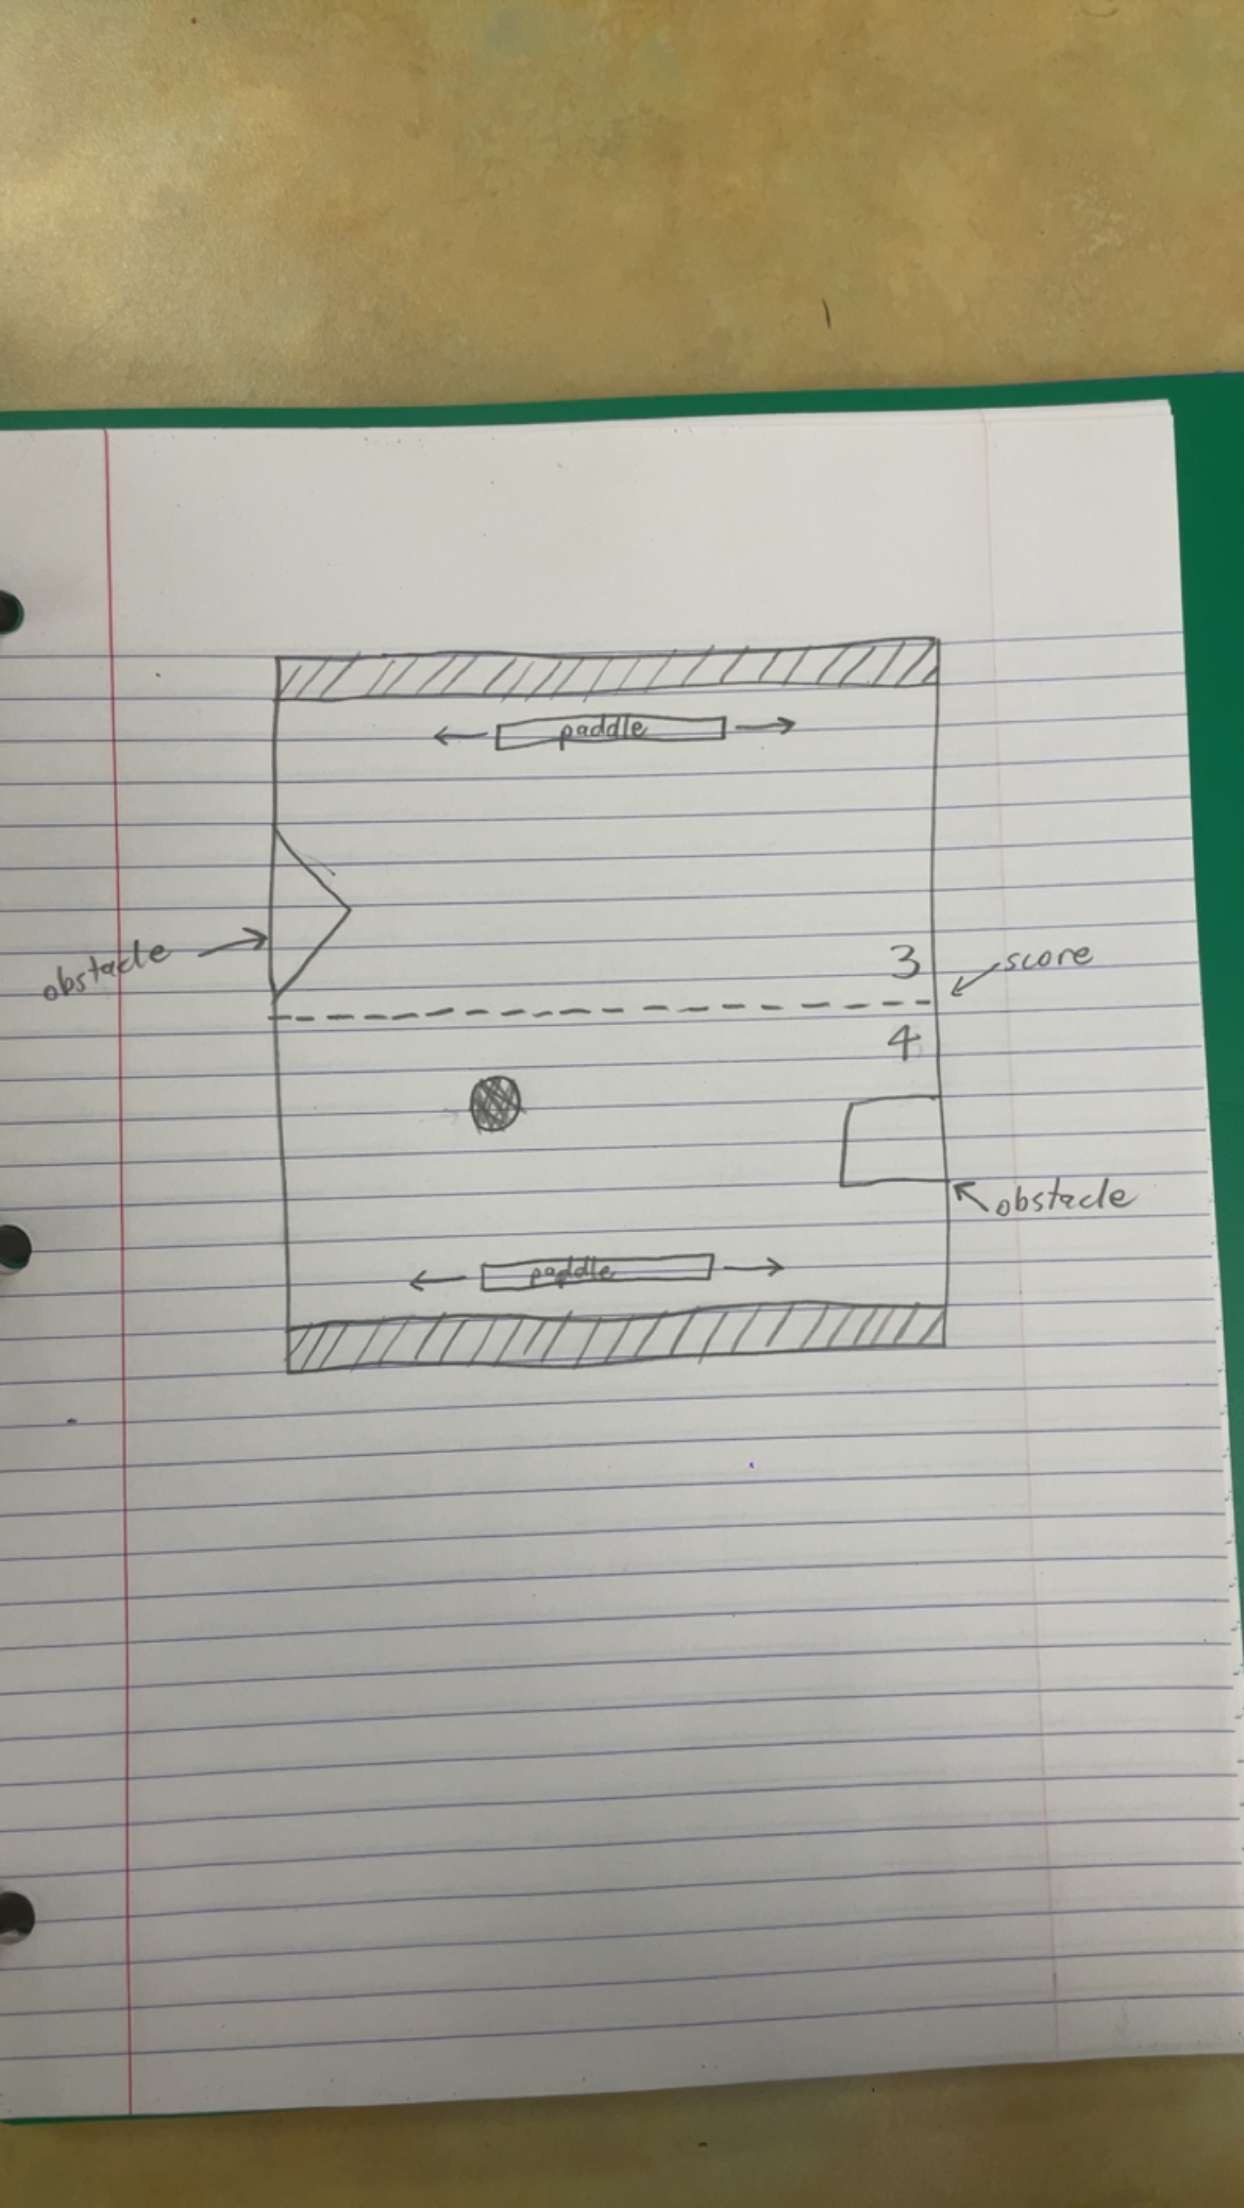 paddle
obstacle
3
score
4
obstacle
paddle